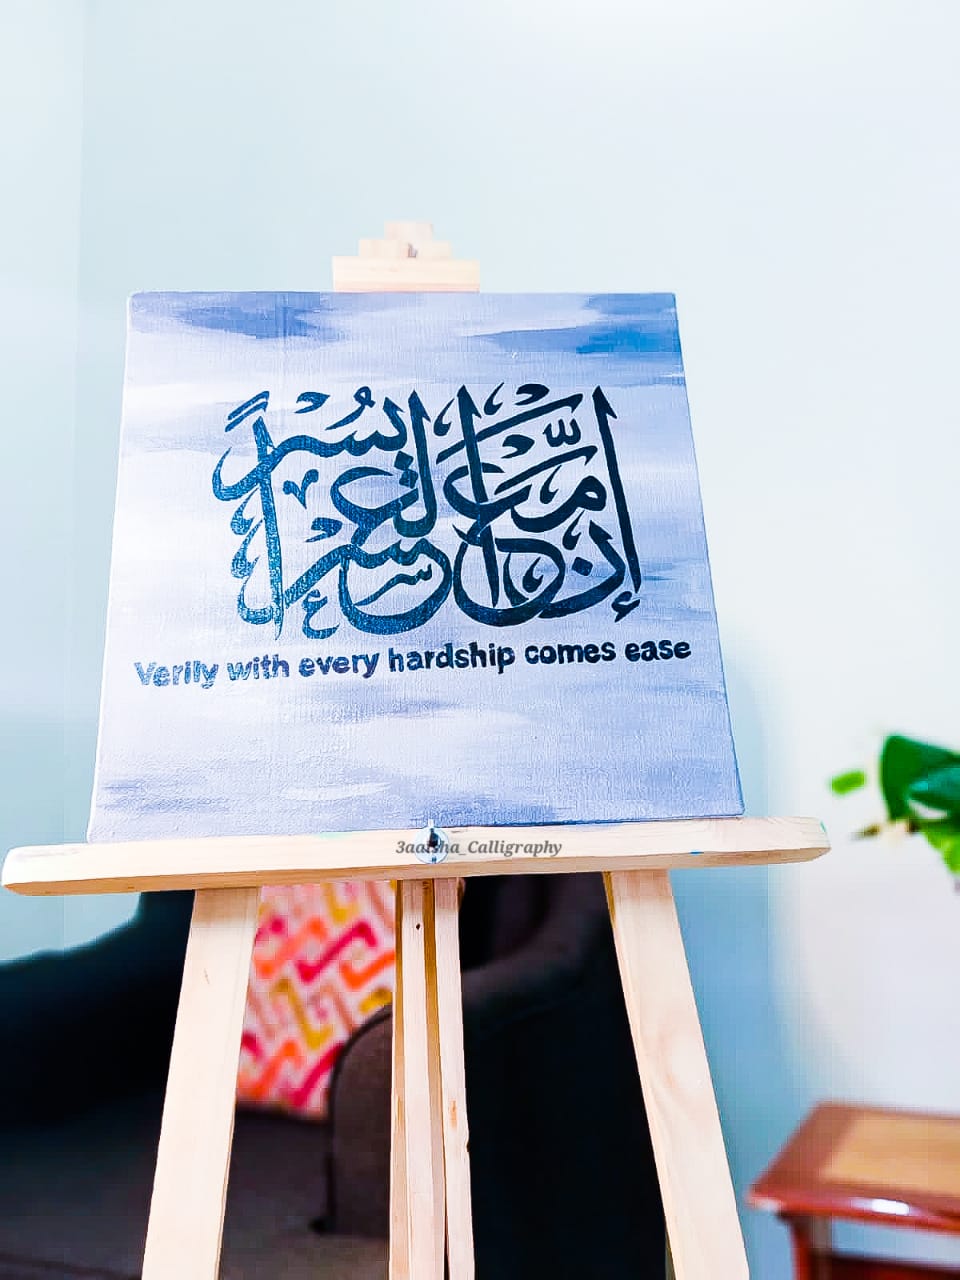 إن مع العسر يسرًا
Verily with every hardship comes ease
3aaisha_Calligraphy